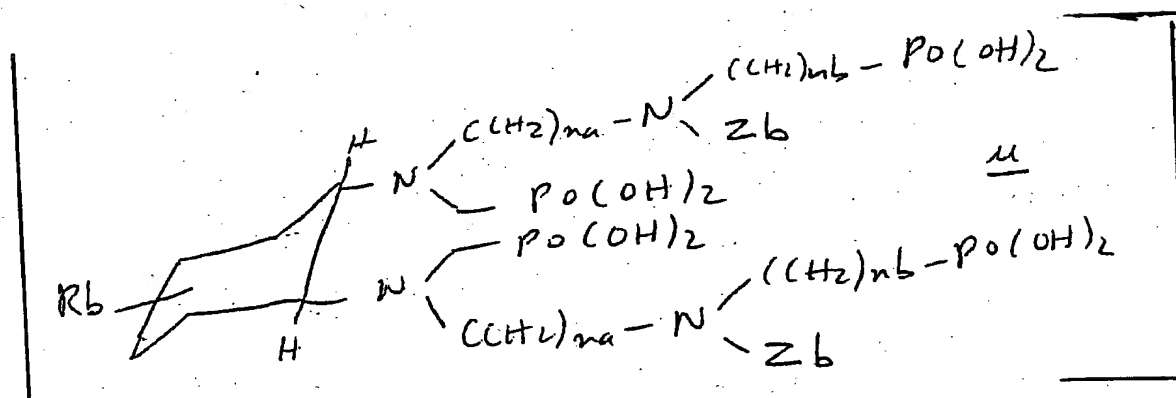 (CH2)nb - PO(OH)2
C(H2)na - N
Zb
H
N
PO(OH)2
PO(OH)2
(CH2)nb - PO(OH)2
Rb
N
C(CH2)na - N
Zb
H